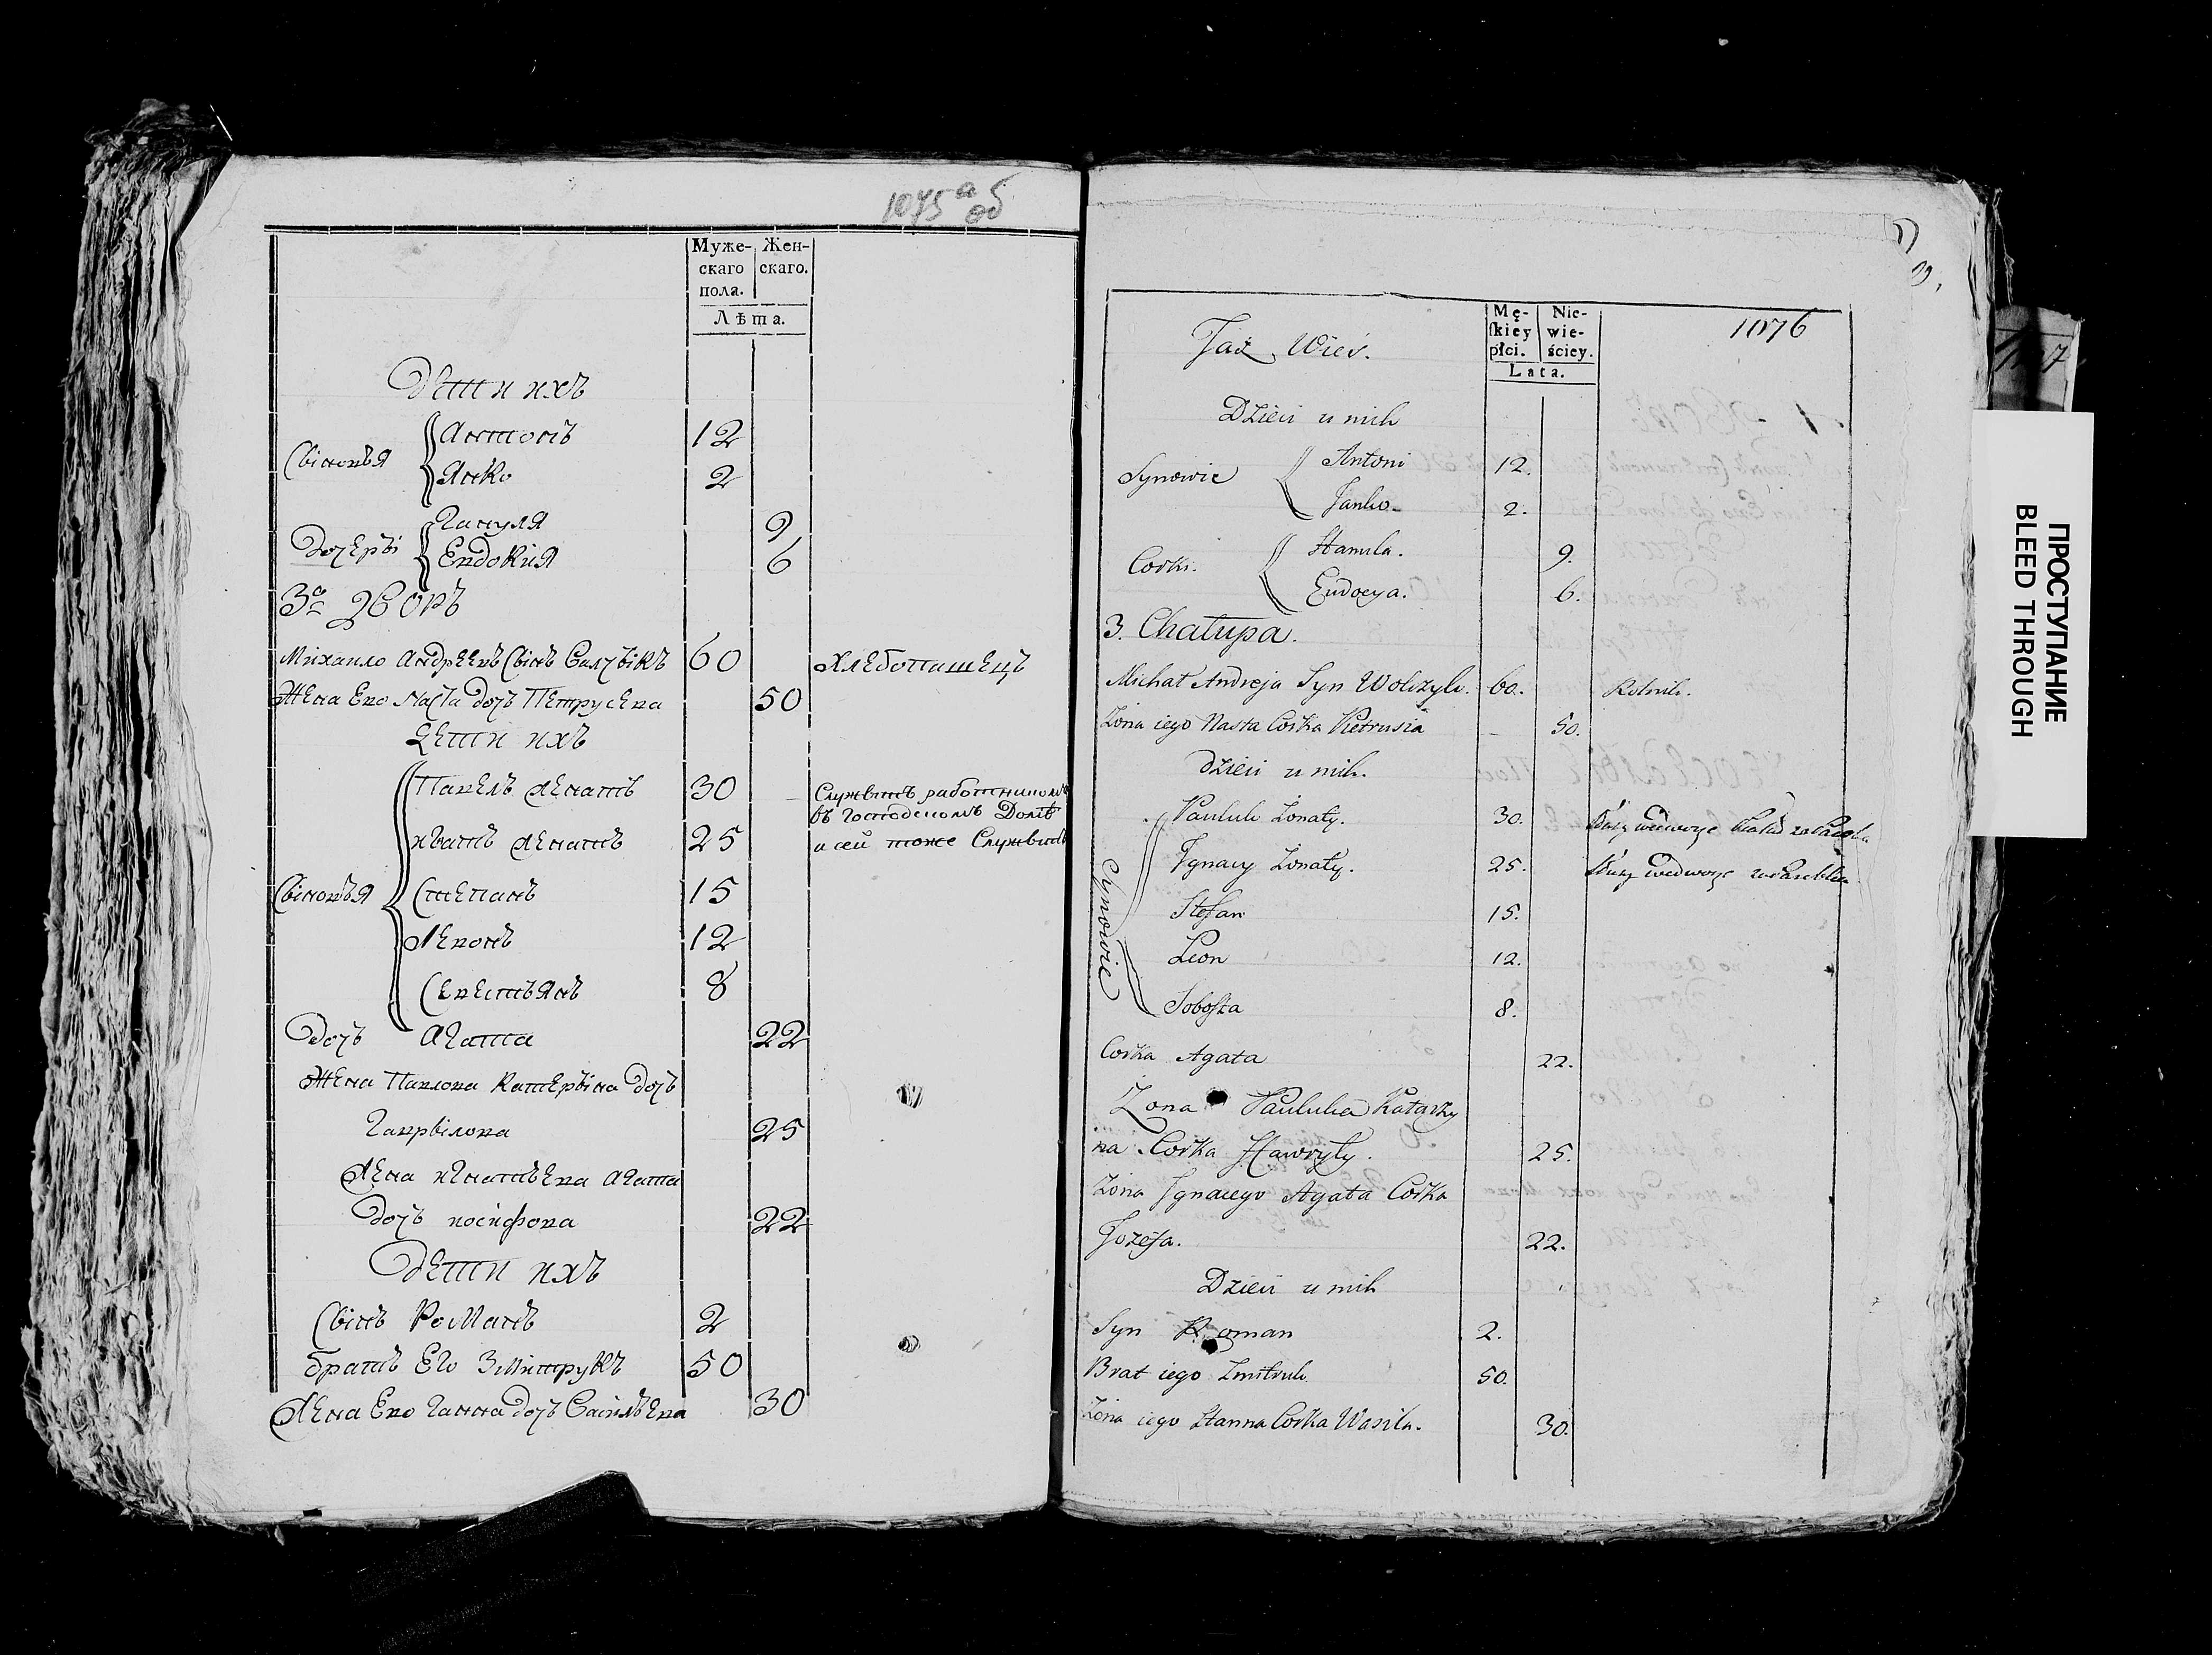 1075 а об
Муже-
скаго
пола.
Жен-
скаго.
Лѣта.
Дети ихъ
Сыновья
Антонъ 12
Янко 2
Дочеры
Гануля 9
Евдокия 6
3й дворъ
Михаило Андреевъ Сынъ Валчыкъ 60 Хлебопашецъ
Жена Ево Наста дочъ Петрусева 50
Дети ихъ
Сыновья
Павелъ женатъ 30 Служытъ работникомъ
въ Господскомъ Доме
Игнатъ женатъ 25 и сей тоже Служытъ
Степанъ 15
Левонъ 12
Севестьянъ 8
Дочъ Агата 22
Жена Павлова Катерына дочъ
Гаврылова 25
Жена Игнатьева Агата
дочъ иосифова 22
Дети ихъ
Сынъ Романъ 2
братъ Его Змитрукъ 50
Жена Ево Ганна дочъ Васильева 30
1076
Taż Wieś.
Mę-
skiey
płci.
Nie-
wie-
ściey.
Lata.
Dzieci u nich
Synowie
Antoni 12.
Janko 2.
Corki.
Hanula. 9.
Eudocya. 6.
3. Chałupa.
Michał Andreja Syn Wolczyk. 60. Rolnik.
Zona iego Nasta Corka Pietrusia 50.
Dzieci u nich.
Synowie
Pauluk Zonaty. 30.
Ignacy Zonaty. 25.
Stefan 15.
Leon 12.
Sobostka 8.
Corka Agata 22.
Zona Pauluka Katarzy
na Corka Hawryły. 25.
Zona Ignacego Agata Corka
Jozefa. 22.
Dzieci u nich
Syn Roman 2.
Brat iego Zmitruk 50.
Zona iego Hanna Corka Wasila. 30.
ПРОСТУПАНИЕ
BLEED THROUGH